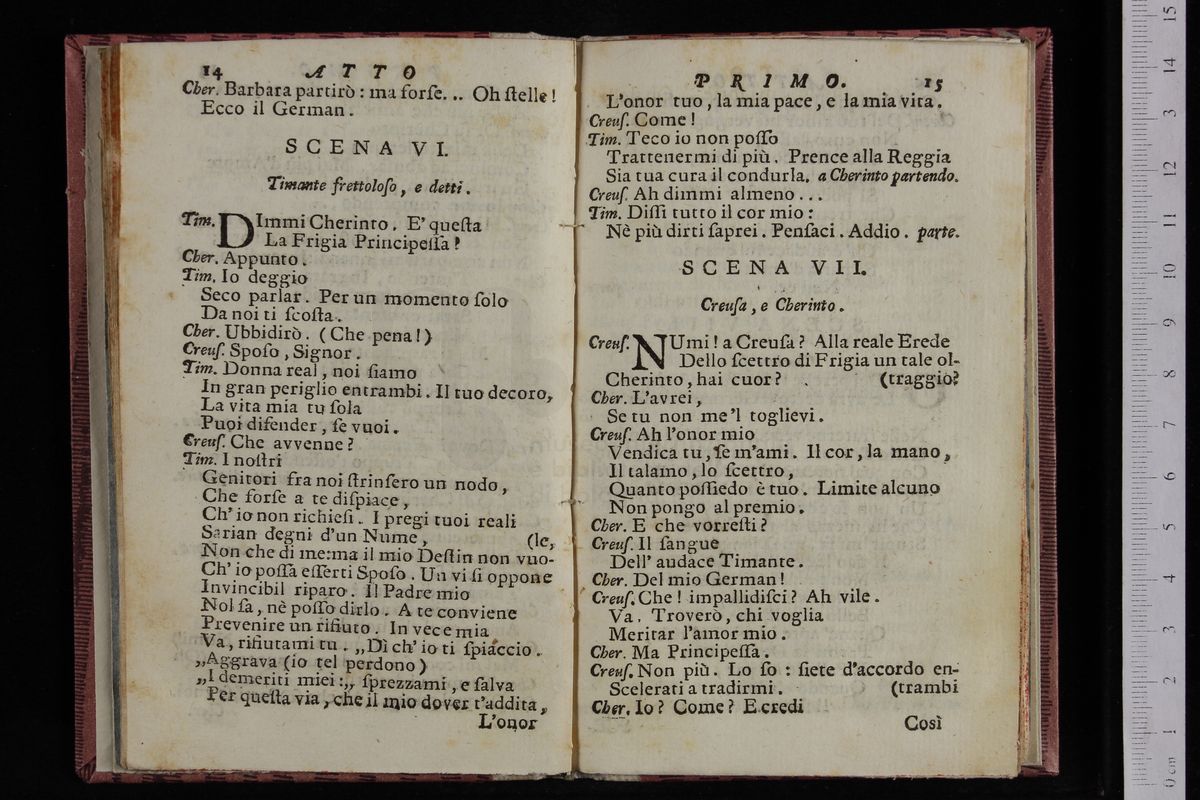 14 ATTO
Cher. Barbara partirò : ma forſe... Oh ſtelle !
Ecco il German.
SCENA VI.
Timante frettoloſo, e detti.
Tim. DImmi Cherinto. E' queſta
La Frigia Principeſſa ?
Cher. Appunto.
Tim. Io deggio
Seco parlar. Per un momento ſolo
Da noi ti ſcoſta.
Cher. Ubbidirò. (Che pena!)
Creuſ. Spoſo, Signor.
Tim. Donna real, noi ſiamo
In gran periglio entrambi. Il tuo decoro,
La vita mia tu ſola
Puoi difender, ſe vuoi.
Creuſ. Che avvenne ?
Tim. I noſtri
Genitori fra noi ſtrinſero un nodo,
Che forſe a te diſpiace,
Ch' io non richieſi. I pregi tuoi reali
Sarian degni d'un Nume, (le,
Non che di me: ma il mio Deſtin non vuo-
Ch' io poſſa eſſerti Spoſo. Un vi ſi oppone
Invincibil riparo. Il Padre mio
Nol ſa, nè poſſo dirlo. A te conviene
Prevenire un rifiuto. In vece mia
Va, rifiutami tu. „Dì ch' io ti ſpiaccio.
„Aggrava (io tel perdono)
„I demeriti miei :„ ſprezzami, e ſalva
Per queſta via, che il mio dover t'addita,
L'onor
PRIMO. 15
L'onor tuo, la mia pace, e la mia vita.
Creuſ. Come !
Tim. Teco io non poſſo
Trattenermi di più. Prence alla Reggia
Sia tua cura il condurla. a Cherinto partendo.
Creuſ. Ah dimmi almeno...
Tim. Diſſi tutto il cor mio :
Nè più dirti ſaprei. Penſaci. Addio. parte.
SCENA VII.
Creuſa, e Cherinto.
Creuſ. NUmi ! a Creuſa ? Alla reale Erede
Dello ſcettro di Frigia un tale ol-
Cherinto, hai cuor ? (traggio?
Cher. L'avrei,
Se tu non me'l toglievi.
Creuſ. Ah l'onor mio
Vendica tu, ſe m'ami. Il cor, la mano,
Il talamo, lo ſcettro,
Quanto poſſiedo è tuo. Limite alcuno
Non pongo al premio.
Cher. E che vorreſti ?
Creuſ. Il ſangue
Dell' audace Timante.
Cher. Del mio German !
Creuſ. Che ! impallidiſci ? Ah vile.
Va. Troverò, chi voglia
Meritar l'amor mio.
Cher. Ma Principeſſa.
Creuſ. Non più. Lo ſo : ſiete d'accordo en-
Scelerati a tradirmi. (trambi
Cher. Io ? Come ? E credi
Così